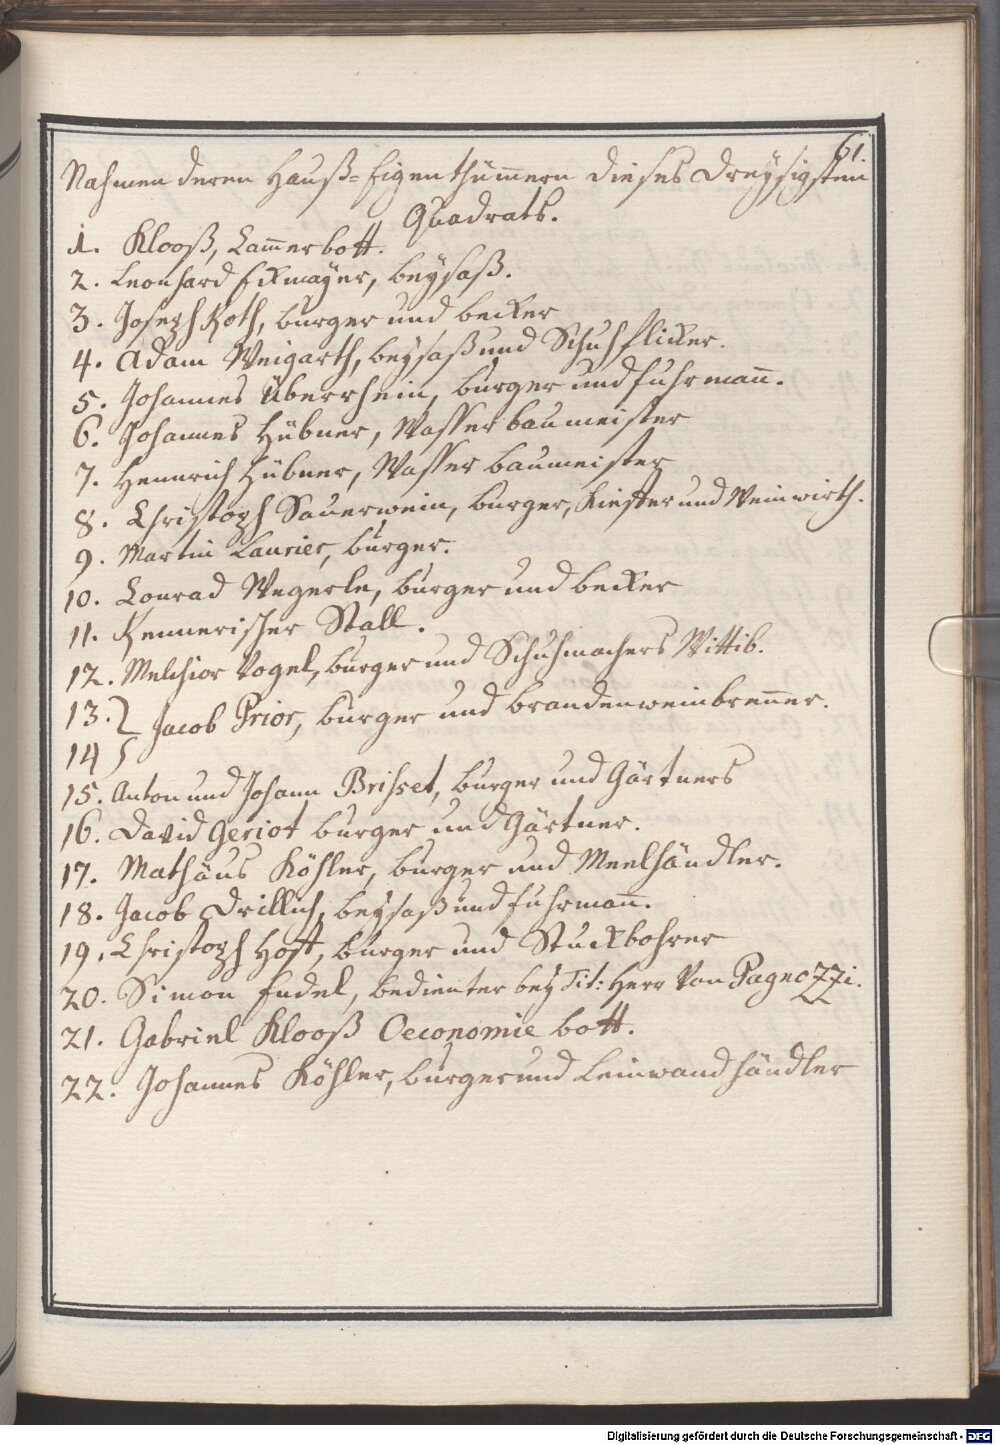 61.
Nahmen deren Hauß-Eigenthümern dieses Dreysigsten
Quadrats.
1. Klooß, Cam̄erbott.
2. Leonhard Eckmayer, beysaß.
3. Joseph Roth, burger und becker
4. Adam Weigarth, beysaß und Schuhflicker.
5. Johannes Überrhein, burger und fuhrman̄.
6. Johannes Hübner, Wasserbaumeister
7. Hennrich Hübner, Wasser baumeister
8. Christoph Sauerwein, burger, Kieffer und Weinwirth.
9. Martin Laurier, burger.
10. Conrad Wegerle, burger und becker
11. Rennerischer Stall.
12. Melchior Vogel, burger und Schuhmachers Wittib.
13. } Jacob Prior, burger und brandenweinbren̄er.
14 }
15. Anton und Johann Brisset, burger und Gärtners
16. David Geriot burger und Gärtner.
17. Mathäus Köhler, burger und Meelhändler.
18. Jacob Drillich, beysaß und fuhrman̄.
19. Christoph Hoff, burger und Stuckbohrer
20. Simon Endel, bedienter bey Tit: Herr Von Pagnozzi.
21. Gabriel Klooß Oeconomie bott.
22. Johannes Köhler, burger und Leinwandhändler
Digitalisierung gefördert durch die Deutsche Forschungsgemeinschaft - DFG